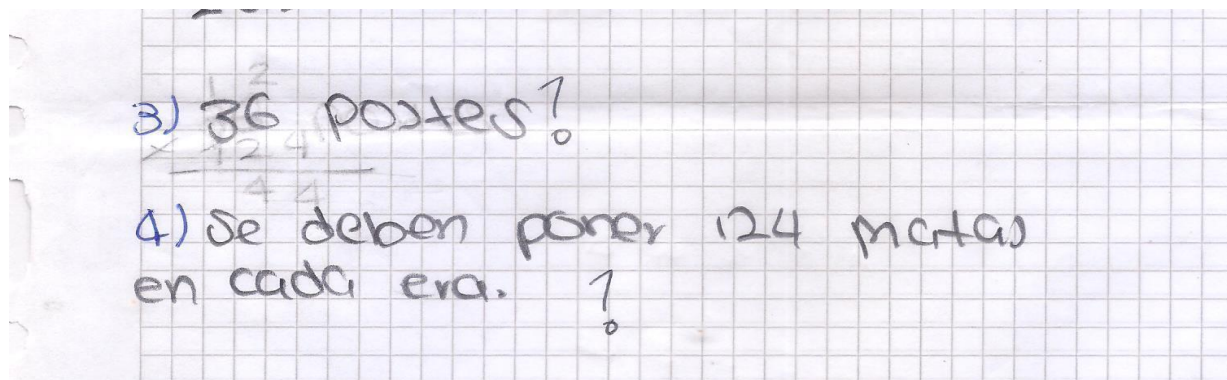 3) 36 postes?
4) Se deben poner 124 matas
en cada era. ?